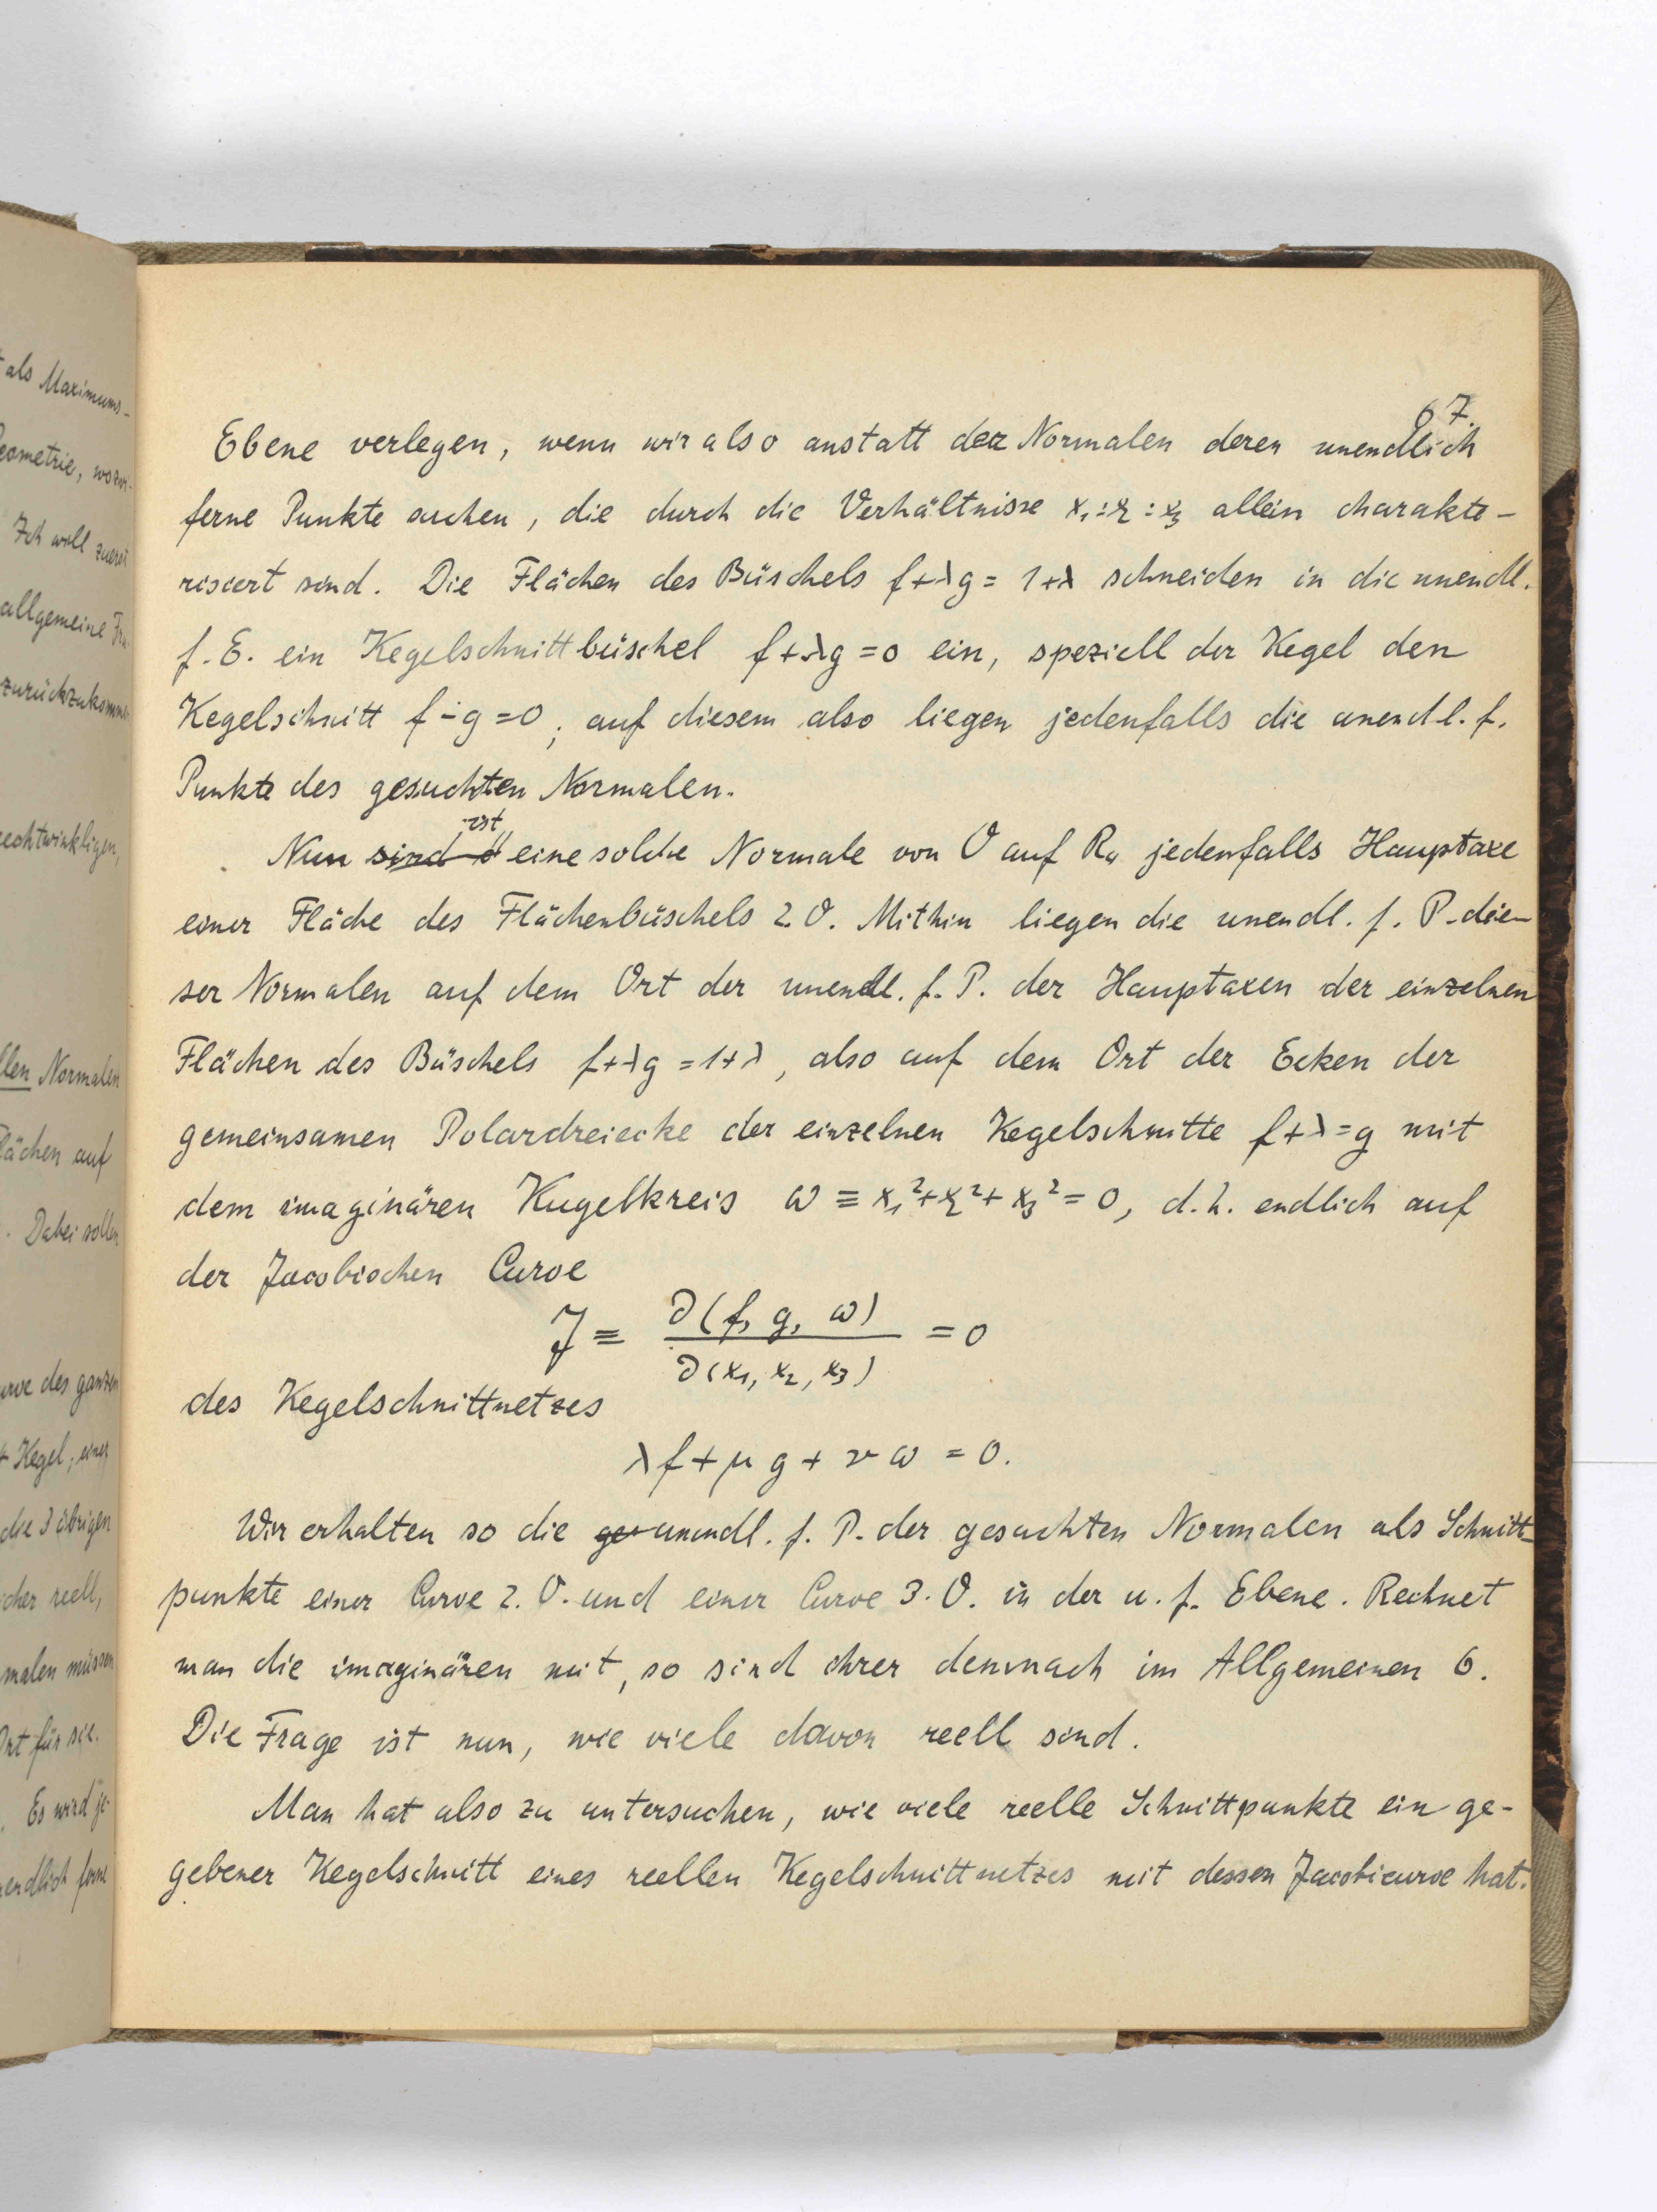 als Maximums-
67.
Ebene verlegen, wenn wir also anstatt der Normalen deren unendlich
ferne Punkte suchen, die durch die Verhältnisse x₁:x₂:x₃ allein charakte-
risiert sind. Die Flächen des Büschels f+λg = 1+λ schneiden in die unendl.
f. E. ein Kegelschnittbüschel f+λg=0 ein, speziell der Kegel den
Kegelschnitt f-g=0; auf diesem also liegen jedenfalls die unendl. f.
Punkte des gesuchten Normalen.
ist
Nun sind eine solche Normale von O auf R₄ jedenfalls Hauptaxe
einer Fläche des Flächenbüschels 2.O. Mithin liegen die unendl. f. P. die-
ser Normalen auf dem Ort der unendl. f. P. der Hauptaxen der einzelnen
Flächen des Büschels f+λg=1+λ, also auf dem Ort der Ecken der
gemeinsamen Polardreiecke der einzelnen Kegelschnitte f+λ=g mit
dem imaginären Kugelkreis ω ≡ x₁²+x₂²+x₃²=0, d.h. endlich auf
der Jacobischen Curve
J ≡ ∂(f, g, ω) / ∂(x₁, x₂, x₃) = 0
des Kegelschnittnetzes
λf+μg+νω = 0.
Wir erhalten so die ge unendl. f. P. der gesuchten Normalen als Schnitt-
punkte einer Curve 2. O. und einer Curve 3. O. in der u. f. Ebene. Rechnet
man die imaginären mit, so sind ihrer demnach im Allgemeinen 6.
Die Frage ist nun, wie viele davon reell sind.
Man hat also zu untersuchen, wie viele reelle Schnittpunkte ein ge-
gebener Kegelschnitt eines reellen Kegelschnittnetzes mit dessen Jacobicurve hat.